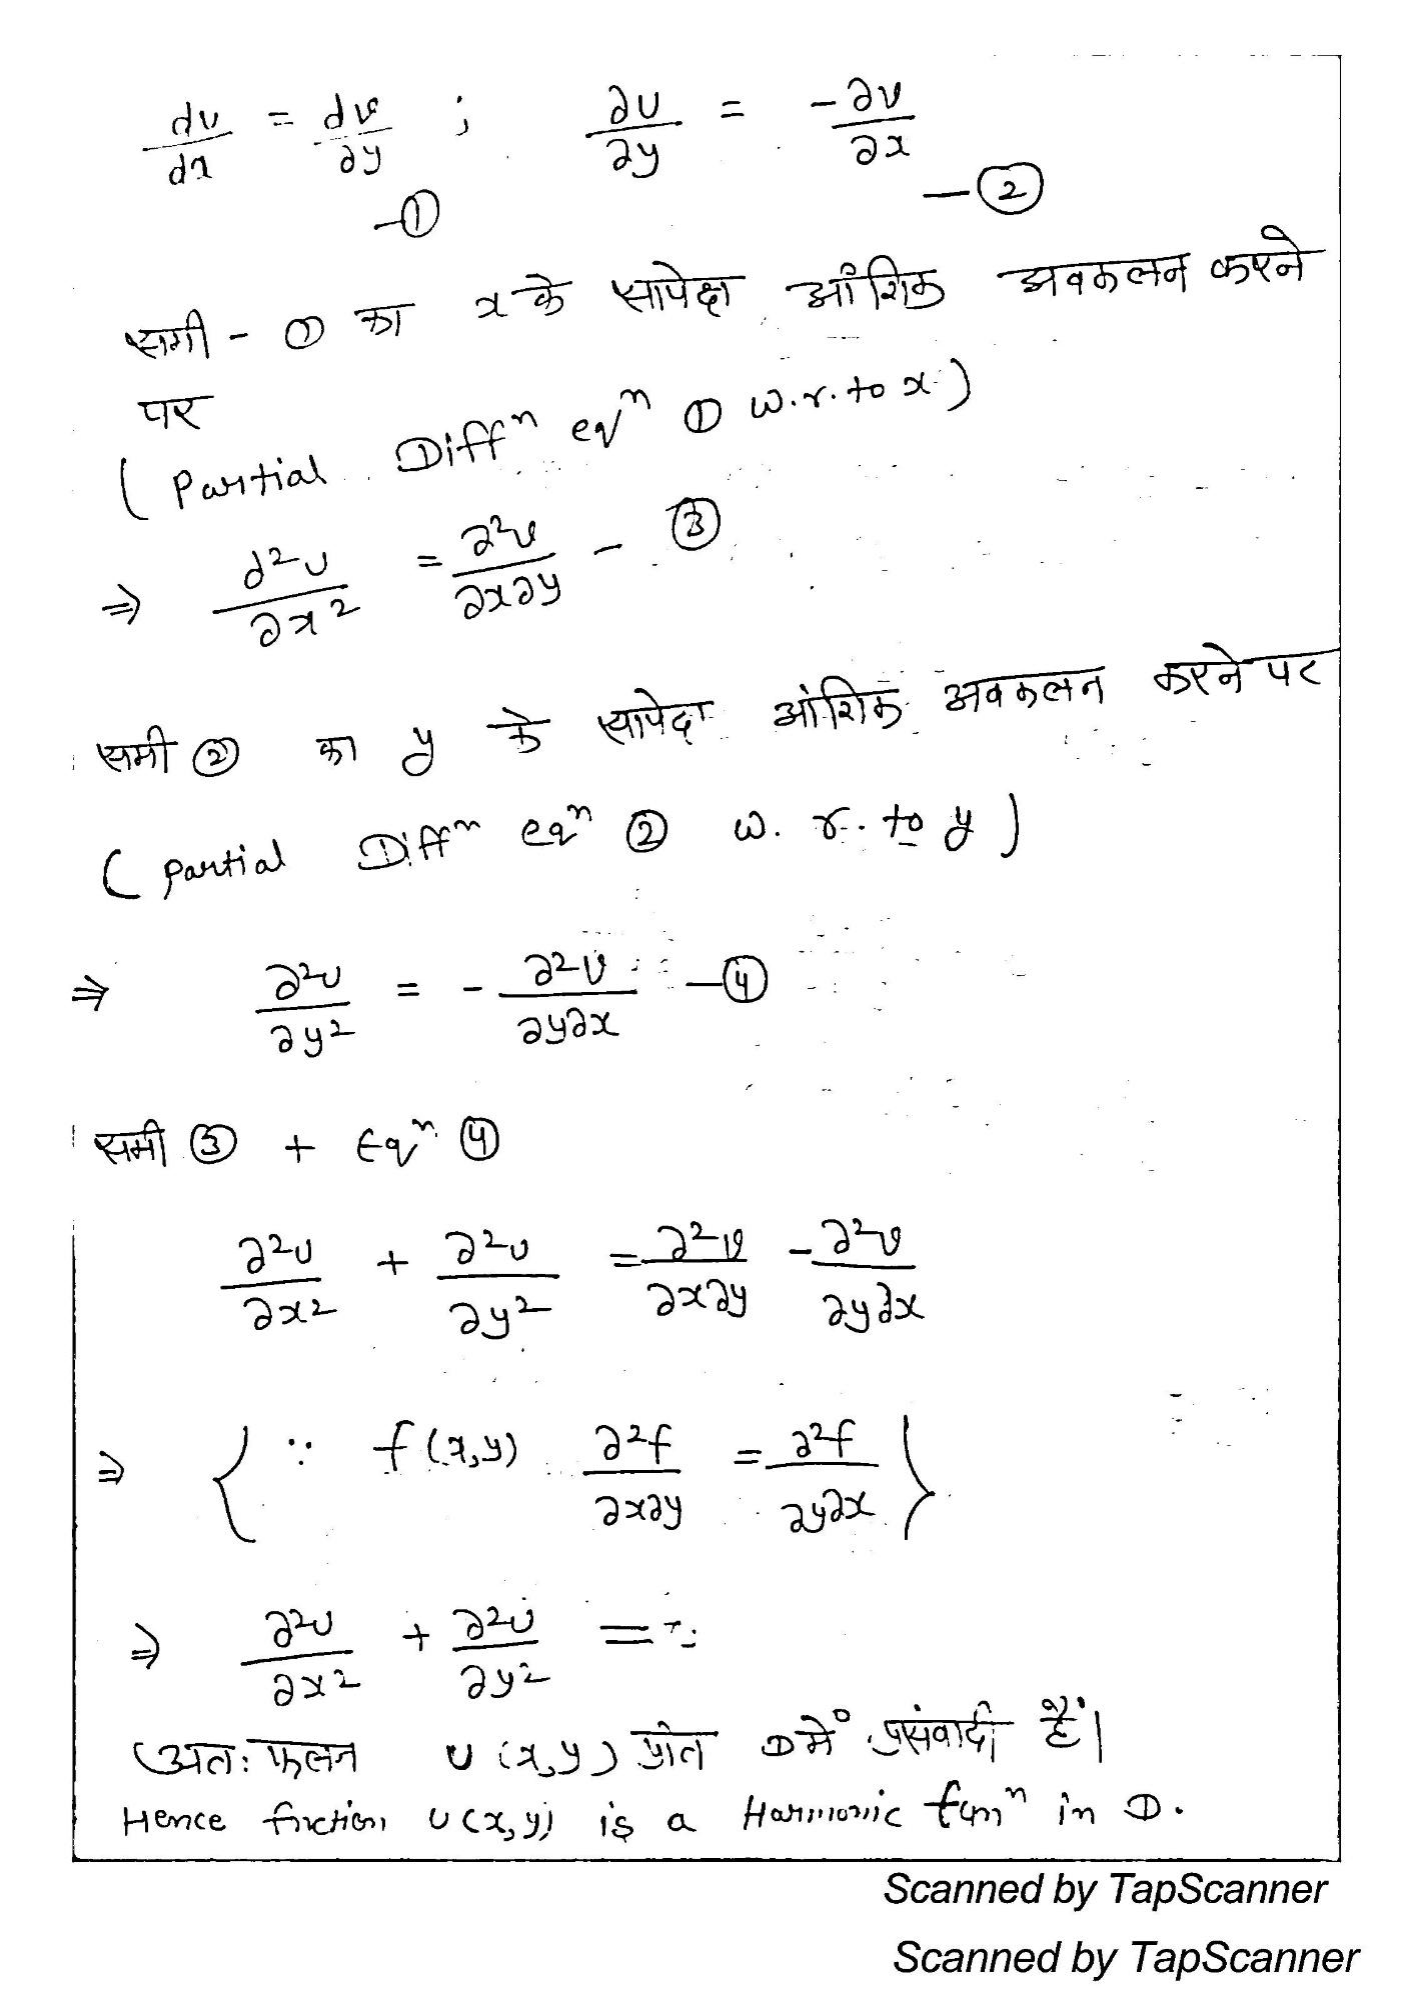 du/dx = dv/∂y ; ∂u/∂y = -∂v/∂x
-① — ②
समी - ① का x के सापेक्ष आंशिक अवकलन करने
पर
( Partial Diffⁿ eqⁿ ① w.r.to x )
⇒ d²u/∂x² = ∂²v/∂x∂y - ③
समी ② का y के सापेक्ष आंशिक अवकलन करने पर
( Partial Diffⁿ eqⁿ ② w. r. to y )
⇒ ∂²u/∂y² = - ∂²v/∂y∂x — ④
समी ③ + Eqⁿ ④
∂²u/∂x² + ∂²u/∂y² = ∂²v/∂x∂y - ∂²v/∂y∂x
⇒ { ∵ f(x,y) ∂²f/∂x∂y = ∂²f/∂y∂x }
⇒ ∂²u/∂x² + ∂²u/∂y² =
अतः फलन u (x,y) D में प्रसंवादी है।
Hence u(x,y) is a Harmonic funⁿ in D.
Scanned by TapScanner
Scanned by TapScanner